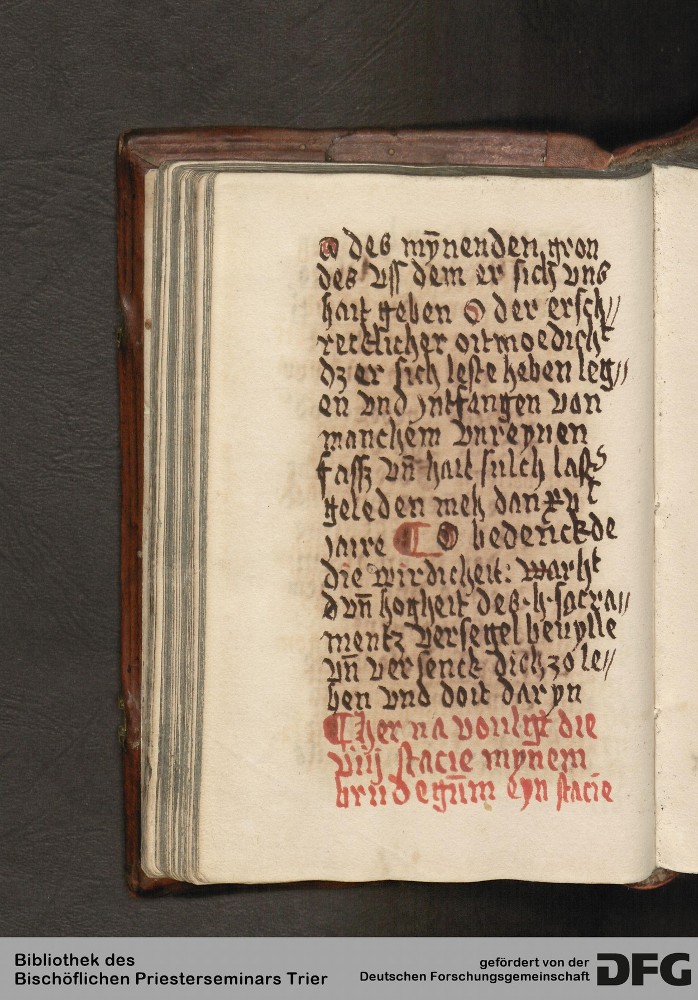 O des mȳnenden gron
des vſſ dem er ſich vns
hait geben O der erſch//
recklicher oitmoedicht
dz er ſich leſte heben leg//
en vnd jntfangen von
manchem vnreynen
faſſz vn̄ hait ſulch laſt
geleden meh dan xv C
jaire ¶ O bedenck de
die wirdicheit: warht
d vn̄ hogheit des .h. ſacra//
mentz verſegel bevylle
vn̄ verſenck dich zo le//
ben vnd doit dar yn
¶ her na volligt die
viij ſtacie mynem
brudegūm eyn ſtacie
Bibliothek des
Bischöflichen Priesterseminars Trier
gefördert von der
Deutschen Forschungsgemeinschaft
DFG